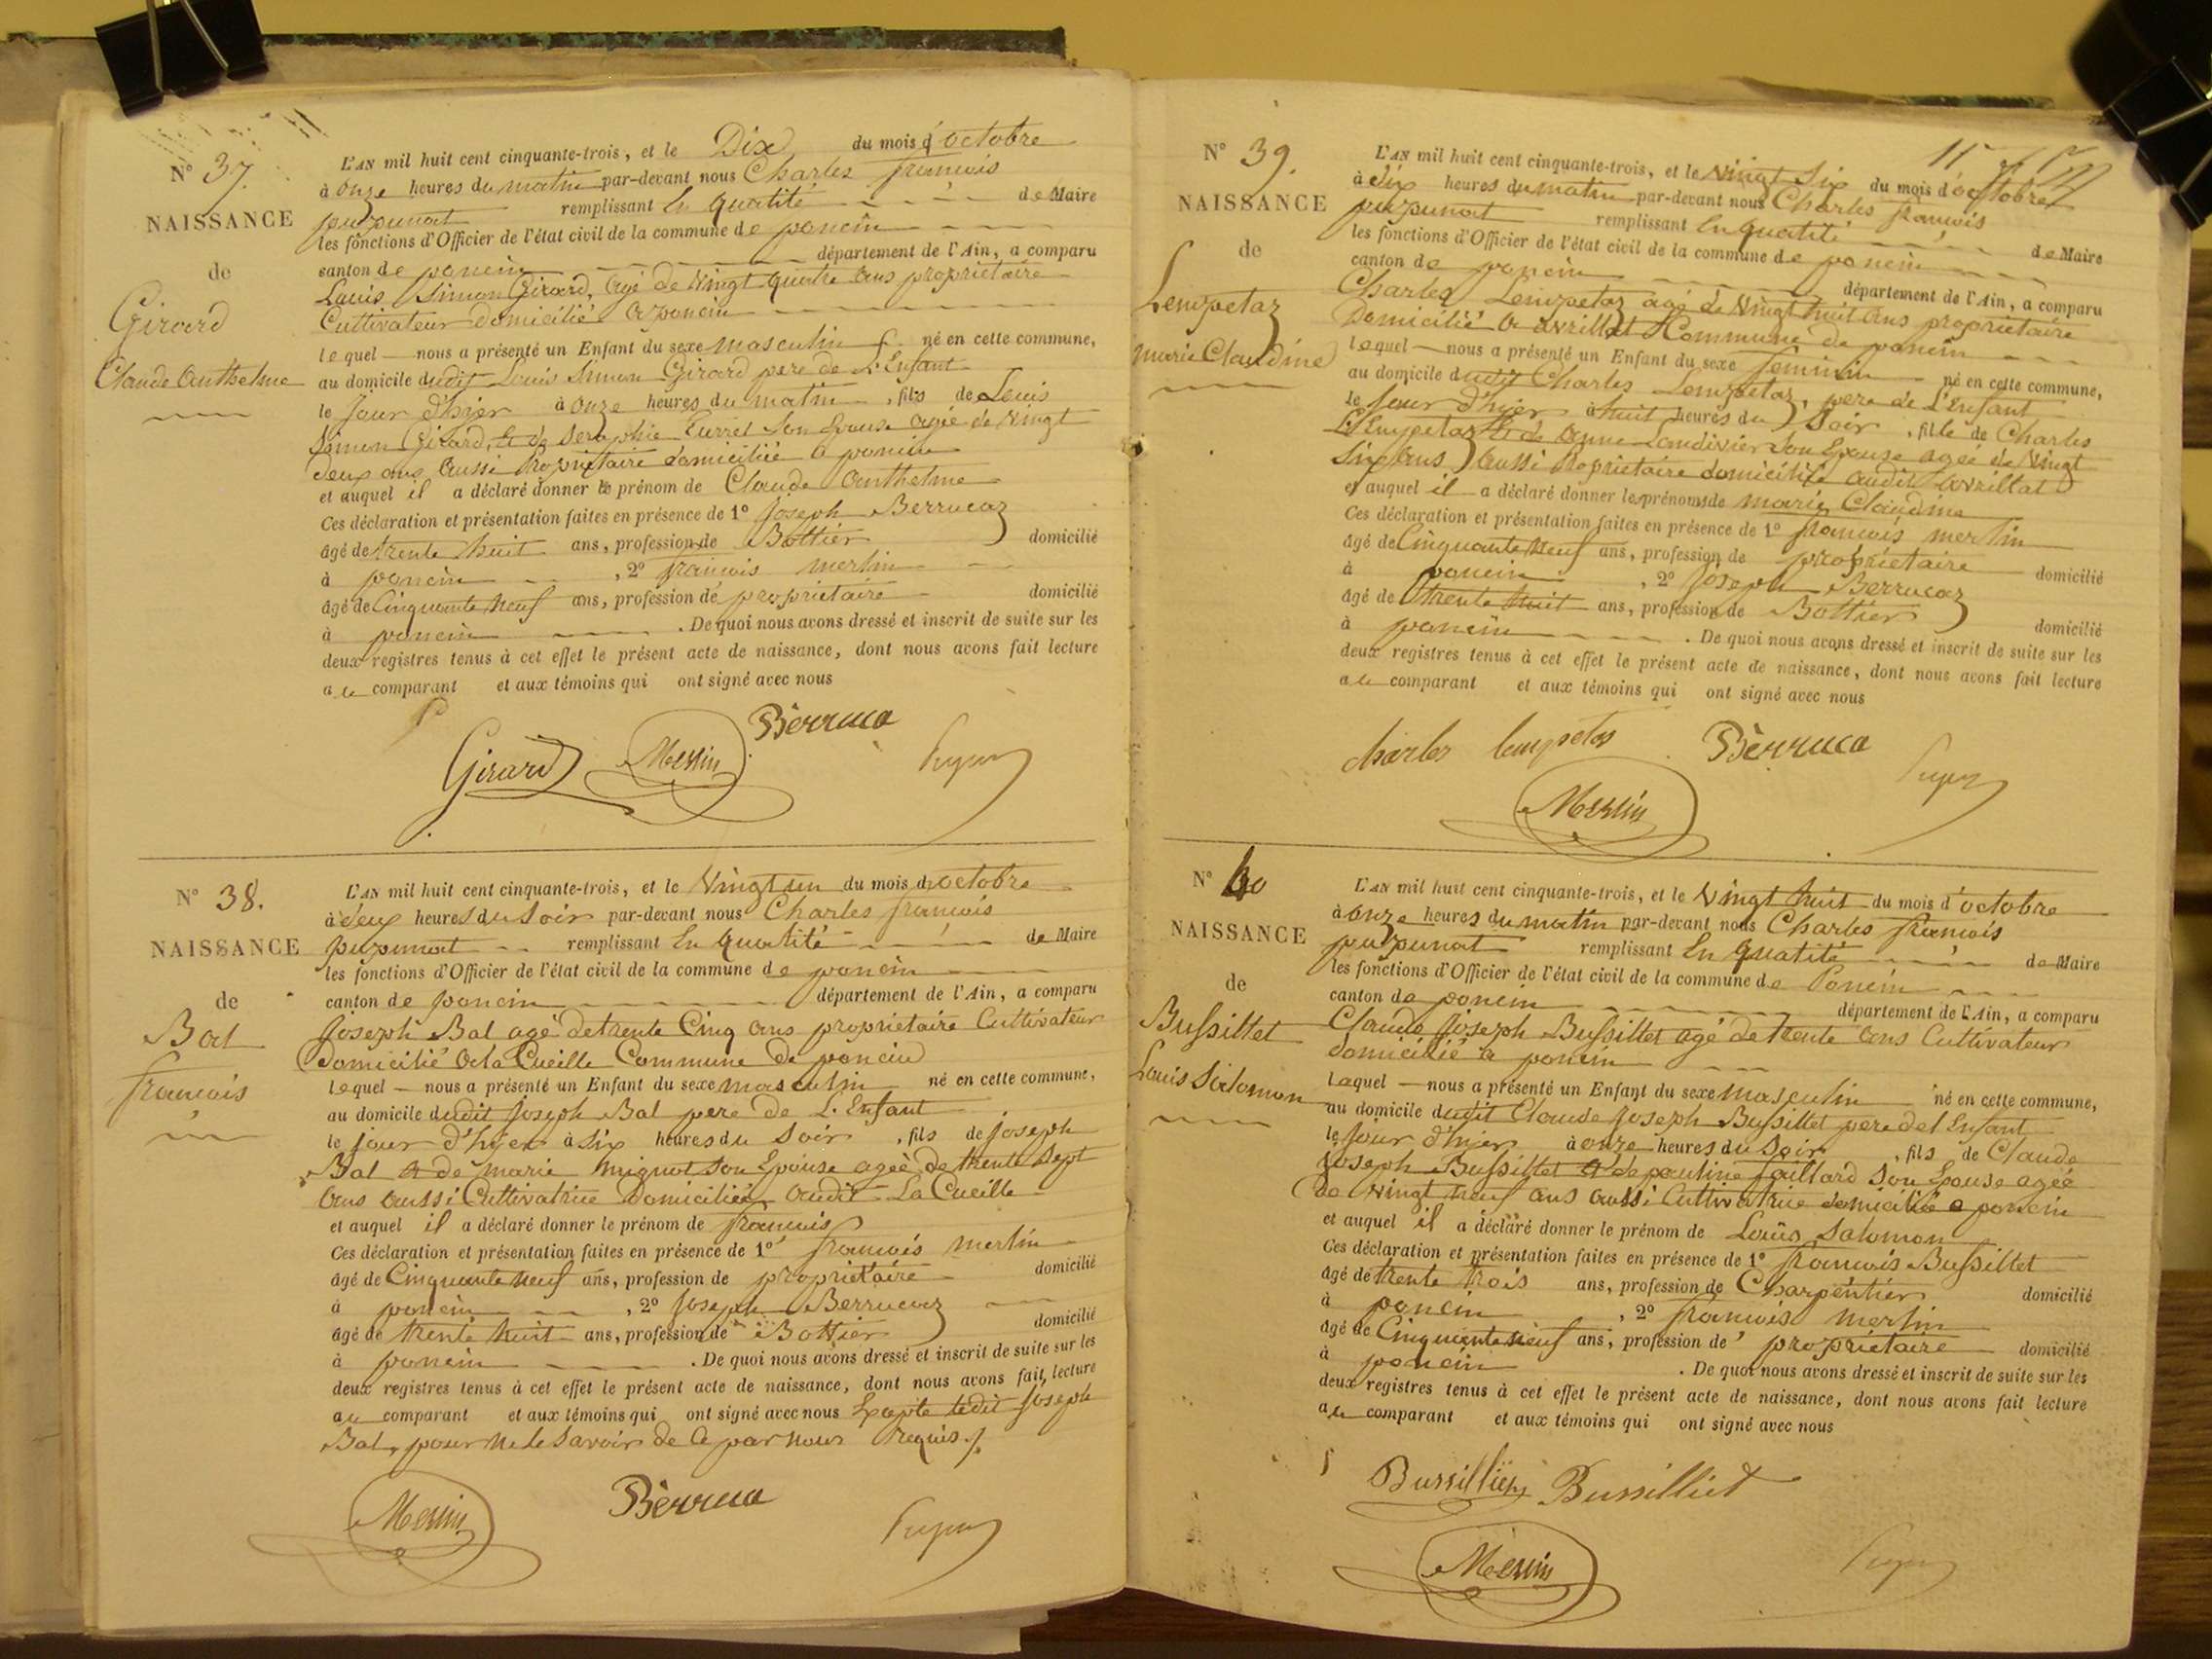 N° 37.
NAISSANCE
de
Girard
Claude Anthelme
L'AN mil huit cent cinquante-trois, et le Dix du mois d'octobre
à onze heures du matin par-devant nous Charles françois
puzpunat remplissant En qualité de Maire
les fonctions d'Officier de l'état civil de la commune de poncin
canton de poncin département de l'Ain, a comparu
Louis Simon Girard, agé de Vingt quatre ans propriétaire
Cultivateur domicilié a poncin
lequel nous a présenté un Enfant du sexe masculin né en cette commune,
au domicile dudit Louis Simon Girard pere de L'Enfant
le Jour d'hyer à onze heures du matin, fils de Louis
Simon Girard, et de Seraphie son Epouse agée de Vingt
deux ans aussi propriétaire domiciliée a poncin
et auquel il a déclaré donner le prénom de Claude Anthelme
Ces déclaration et présentation faites en présence de 1° Joseph Berrucaz
âgé de trente huit ans, profession de Bottier domicilié
à poncin, 2° françois merlin
âgé de Cinquante neuf ans, profession de propriétaire domicilié
à poncin. De quoi nous avons dressé et inscrit de suite sur les
deux registres tenus à cet effet le présent acte de naissance, dont nous avons fait lecture
au comparant et aux témoins qui ont signé avec nous
Girard Merlin Bèrruca
N° 38.
NAISSANCE
de
Bal
françois
L'AN mil huit cent cinquante-trois, et le Vingt un du mois d'octobre
à deux heures du soir par-devant nous Charles françois
puzpunat remplissant En qualité de Maire
les fonctions d'Officier de l'état civil de la commune de poncin
canton de poncin département de l'Ain, a comparu
Joseph Bal agé de trente Cinq ans propriétaire Cultivateur
Domicilié a la Cueille Commune de poncin
lequel nous a présenté un Enfant du sexe masculin né en cette commune,
au domicile dudit Joseph Bal pere de L'Enfant
le jour d'hyer à six heures du soir, fils de Joseph
Bal & de marie mignot son Epouse agée de trente sept
ans aussi Cultivatrice Domiciliée audit La Cueille
et auquel il a déclaré donner le prénom de françois
Ces déclaration et présentation faites en présence de 1° françois merlin
âgé de Cinquante neuf ans, profession de propriétaire domicilié
à poncin, 2° Joseph Berrucaz
âgé de trente huit ans, profession de Bottier domicilié
à poncin. De quoi nous avons dressé et inscrit de suite sur les
deux registres tenus à cet effet le présent acte de naissance, dont nous avons fait lecture
au comparant et aux témoins qui ont signé avec nous Excepté ledit Joseph
Bal, pour ne le savoir de Ce par nous Requis
Merlin Bèrruca
N° 39.
NAISSANCE
de
Lempetaz
marie Claudine
L'AN mil huit cent cinquante-trois, et le Vingt Six du mois d'octobre
à dix heures du matin par-devant nous Charles françois
puzpunat remplissant En qualité de Maire
les fonctions d'Officier de l'état civil de la commune de poncin
canton de poncin département de l'Ain, a comparu
Charles Lempetaz agé de Vingt huit ans propriétaire
Domicilié a avrillat Commune de poncin
lequel nous a présenté un Enfant du sexe feminin né en cette commune,
au domicile dudit Charles Lempetaz, pere de L'Enfant
le Jour d'hyer à huit heures du Soir, fille de Charles
Lempetaz & de Anne Landivier son Epouse agée de Vingt
Six ans aussi Propriétaire domiciliée audit avrillat
et auquel il a déclaré donner les prénoms de marie Claudine
Ces déclaration et présentation faites en présence de 1° françois merlin
âgé de Cinquante neuf ans, profession de propriétaire domicilié
à poncin, 2° Joseph Berrucaz
âgé de trente huit ans, profession de Bottier domicilié
à poncin. De quoi nous avons dressé et inscrit de suite sur les
deux registres tenus à cet effet le présent acte de naissance, dont nous avons fait lecture
au comparant et aux témoins qui ont signé avec nous
charles lempetas Bèrruca
Merlin
N° 40
NAISSANCE
de
Bussillet
Louis Salomon
L'AN mil huit cent cinquante-trois, et le Vingt huit du mois d'octobre
à onze heures du matin par-devant nous Charles françois
puzpunat remplissant En qualité de Maire
les fonctions d'Officier de l'état civil de la commune de Poncin
canton de poncin département de l'Ain, a comparu
Claude Joseph Bussillet agé de trente ans Cultivateur
domicilié a poncin
lequel nous a présenté un Enfant du sexe masculin né en cette commune,
au domicile dudit Claude Joseph Bussillet pere de l'Enfant
le Jour d'hyer à onze heures du Soir, fils de Claude
Joseph Bussillet & de pauline faillard son Epouse agée
de Vingt neuf ans aussi Cultivatrice domiciliée a poncin
et auquel il a déclaré donner le prénom de Louis Salomon
Ces déclaration et présentation faites en présence de 1° françois Bussillet
âgé de trente trois ans, profession de Charpentier domicilié
à poncin, 2° françois merlin
âgé de Cinquante neuf ans, profession de propriétaire domicilié
à poncin. De quoi nous avons dressé et inscrit de suite sur les
deux registres tenus à cet effet le présent acte de naissance, dont nous avons fait lecture
au comparant et aux témoins qui ont signé avec nous
Bussilliet Bussilliet
Merlin